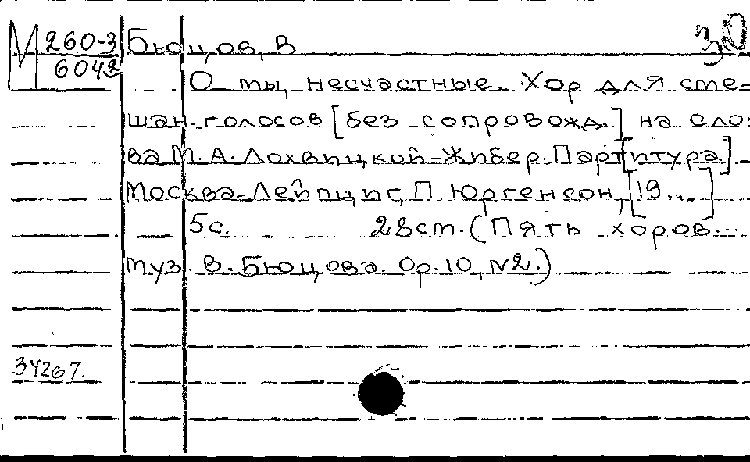 М 260-3 Бюцов, В
6042
О мы, несчастные. Хор для сме-
шан. голосов [без сопровожд.] на сло-
ва М. А. Лохвицкой-Жибер. Парт[итура.]
Москва-Лейпциг, П. Юргенсон, [19...]
5с. 28см. (Пять хоров...
муз. В. Бюцова. Ор. 10, №2.)
34267.